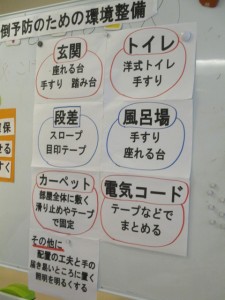 倒予防のための環境整備
玄関
座れる台
手すり 踏み台
トイレ
洋式トイレ
手すり
段差
スロープ
目印テープ
風呂場
手すり
座れる台
カーペット
部屋全体に敷く
滑り止めやテープ
で固定
電気コード
テープなどで
まとめる
その他に
配置の工夫と手の
届き易いところに置く
照明を明るくする
保
せる
すく